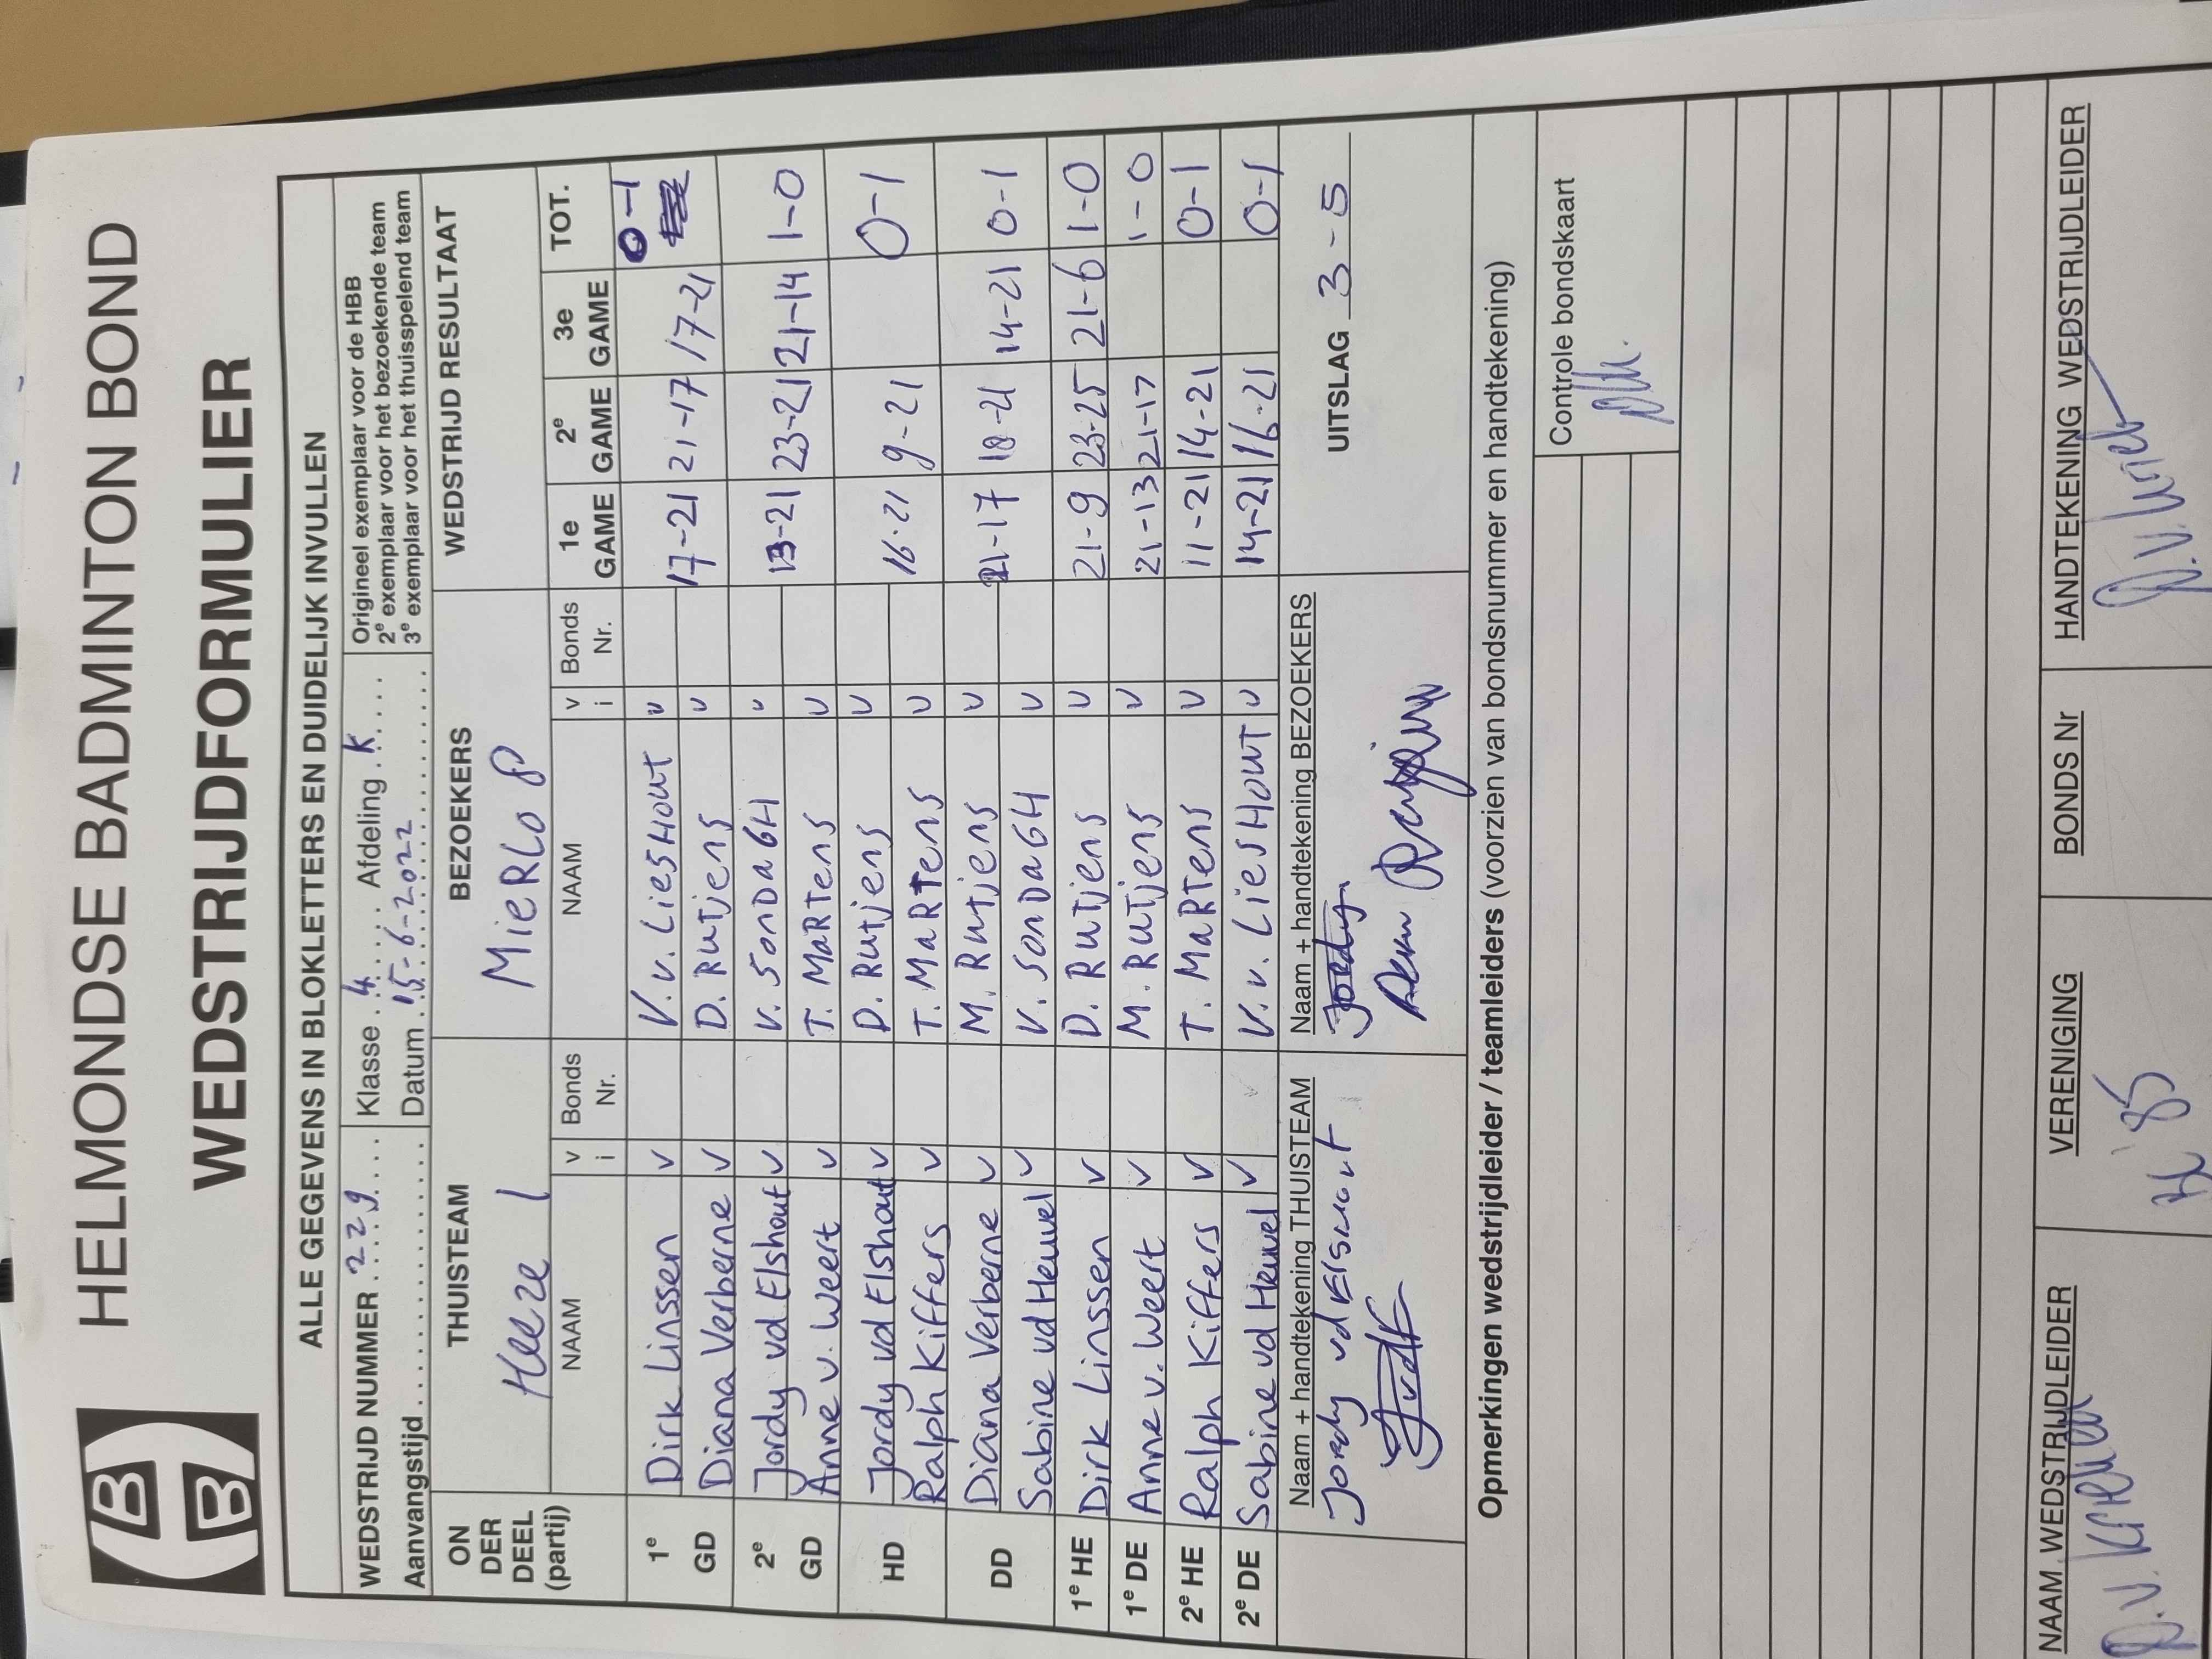 HELMONDSE BADMINTON BOND
WEDSTRIJDFORMULIER
ALLE GEGEVENS IN BLOKLETTERS EN DUIDELIJK INVULLEN
WEDSTRIJD NUMMER 229 Klasse 4 Afdeling K
Aanvangstijd Datum 15-6-2022
Origineel exemplaar voor de HBB
2e exemplaar voor het bezoekende team
3e exemplaar voor het thuisspelend team
ON DER DEEL (partij) THUISTEAM BEZOEKERS WEDSTRIJD RESULTAAT
Heeze 1 MieRLo 8
NAAM v i Bonds Nr. NAAM v i Bonds Nr. 1e GAME 2e GAME 3e GAME TOT.
1e GD Dirk Linssen v V.v. LiesHout v 17-21 21-17 17-21 0-1
Diana Verberne v D. Rutjens v
2e GD Jordy vd Elshout v V. SonDaGH v 13-21 23-21 21-14 1-0
Anne v. Weert v T. MaRTens v
HD Jordy vd Elshout v D. Rutjens v 16-21 9-21 0-1
Ralph Kiffers v T. MaRTens v
DD Diana Verberne v M. Rutjens v 21-17 18-21 14-21 0-1
Sabine vd Heuvel v V. SonDaGH v
1e HE Dirk Linssen v D. Rutjens v 21-9 23-25 21-6 1-0
1e DE Anne v. Weert v M. Rutjens v 21-13 21-17 1-0
2e HE Ralph Kiffers v T. MaRTens v 11-21 14-21 0-1
2e DE Sabine vd Heuvel v V.v. LiesHout v 14-21 16-21 0-1
Naam + handtekening THUISTEAM Naam + handtekening BEZOEKERS UITSLAG 3-5
Jordy vd Elshout
Opmerkingen wedstrijdleider / teamleiders (voorzien van bondsnummer en handtekening)
Controle bondskaart
NAAM WEDSTRIJDLEIDER VERENIGING BONDS Nr HANDTEKENING WEDSTRIJDLEIDER
'85